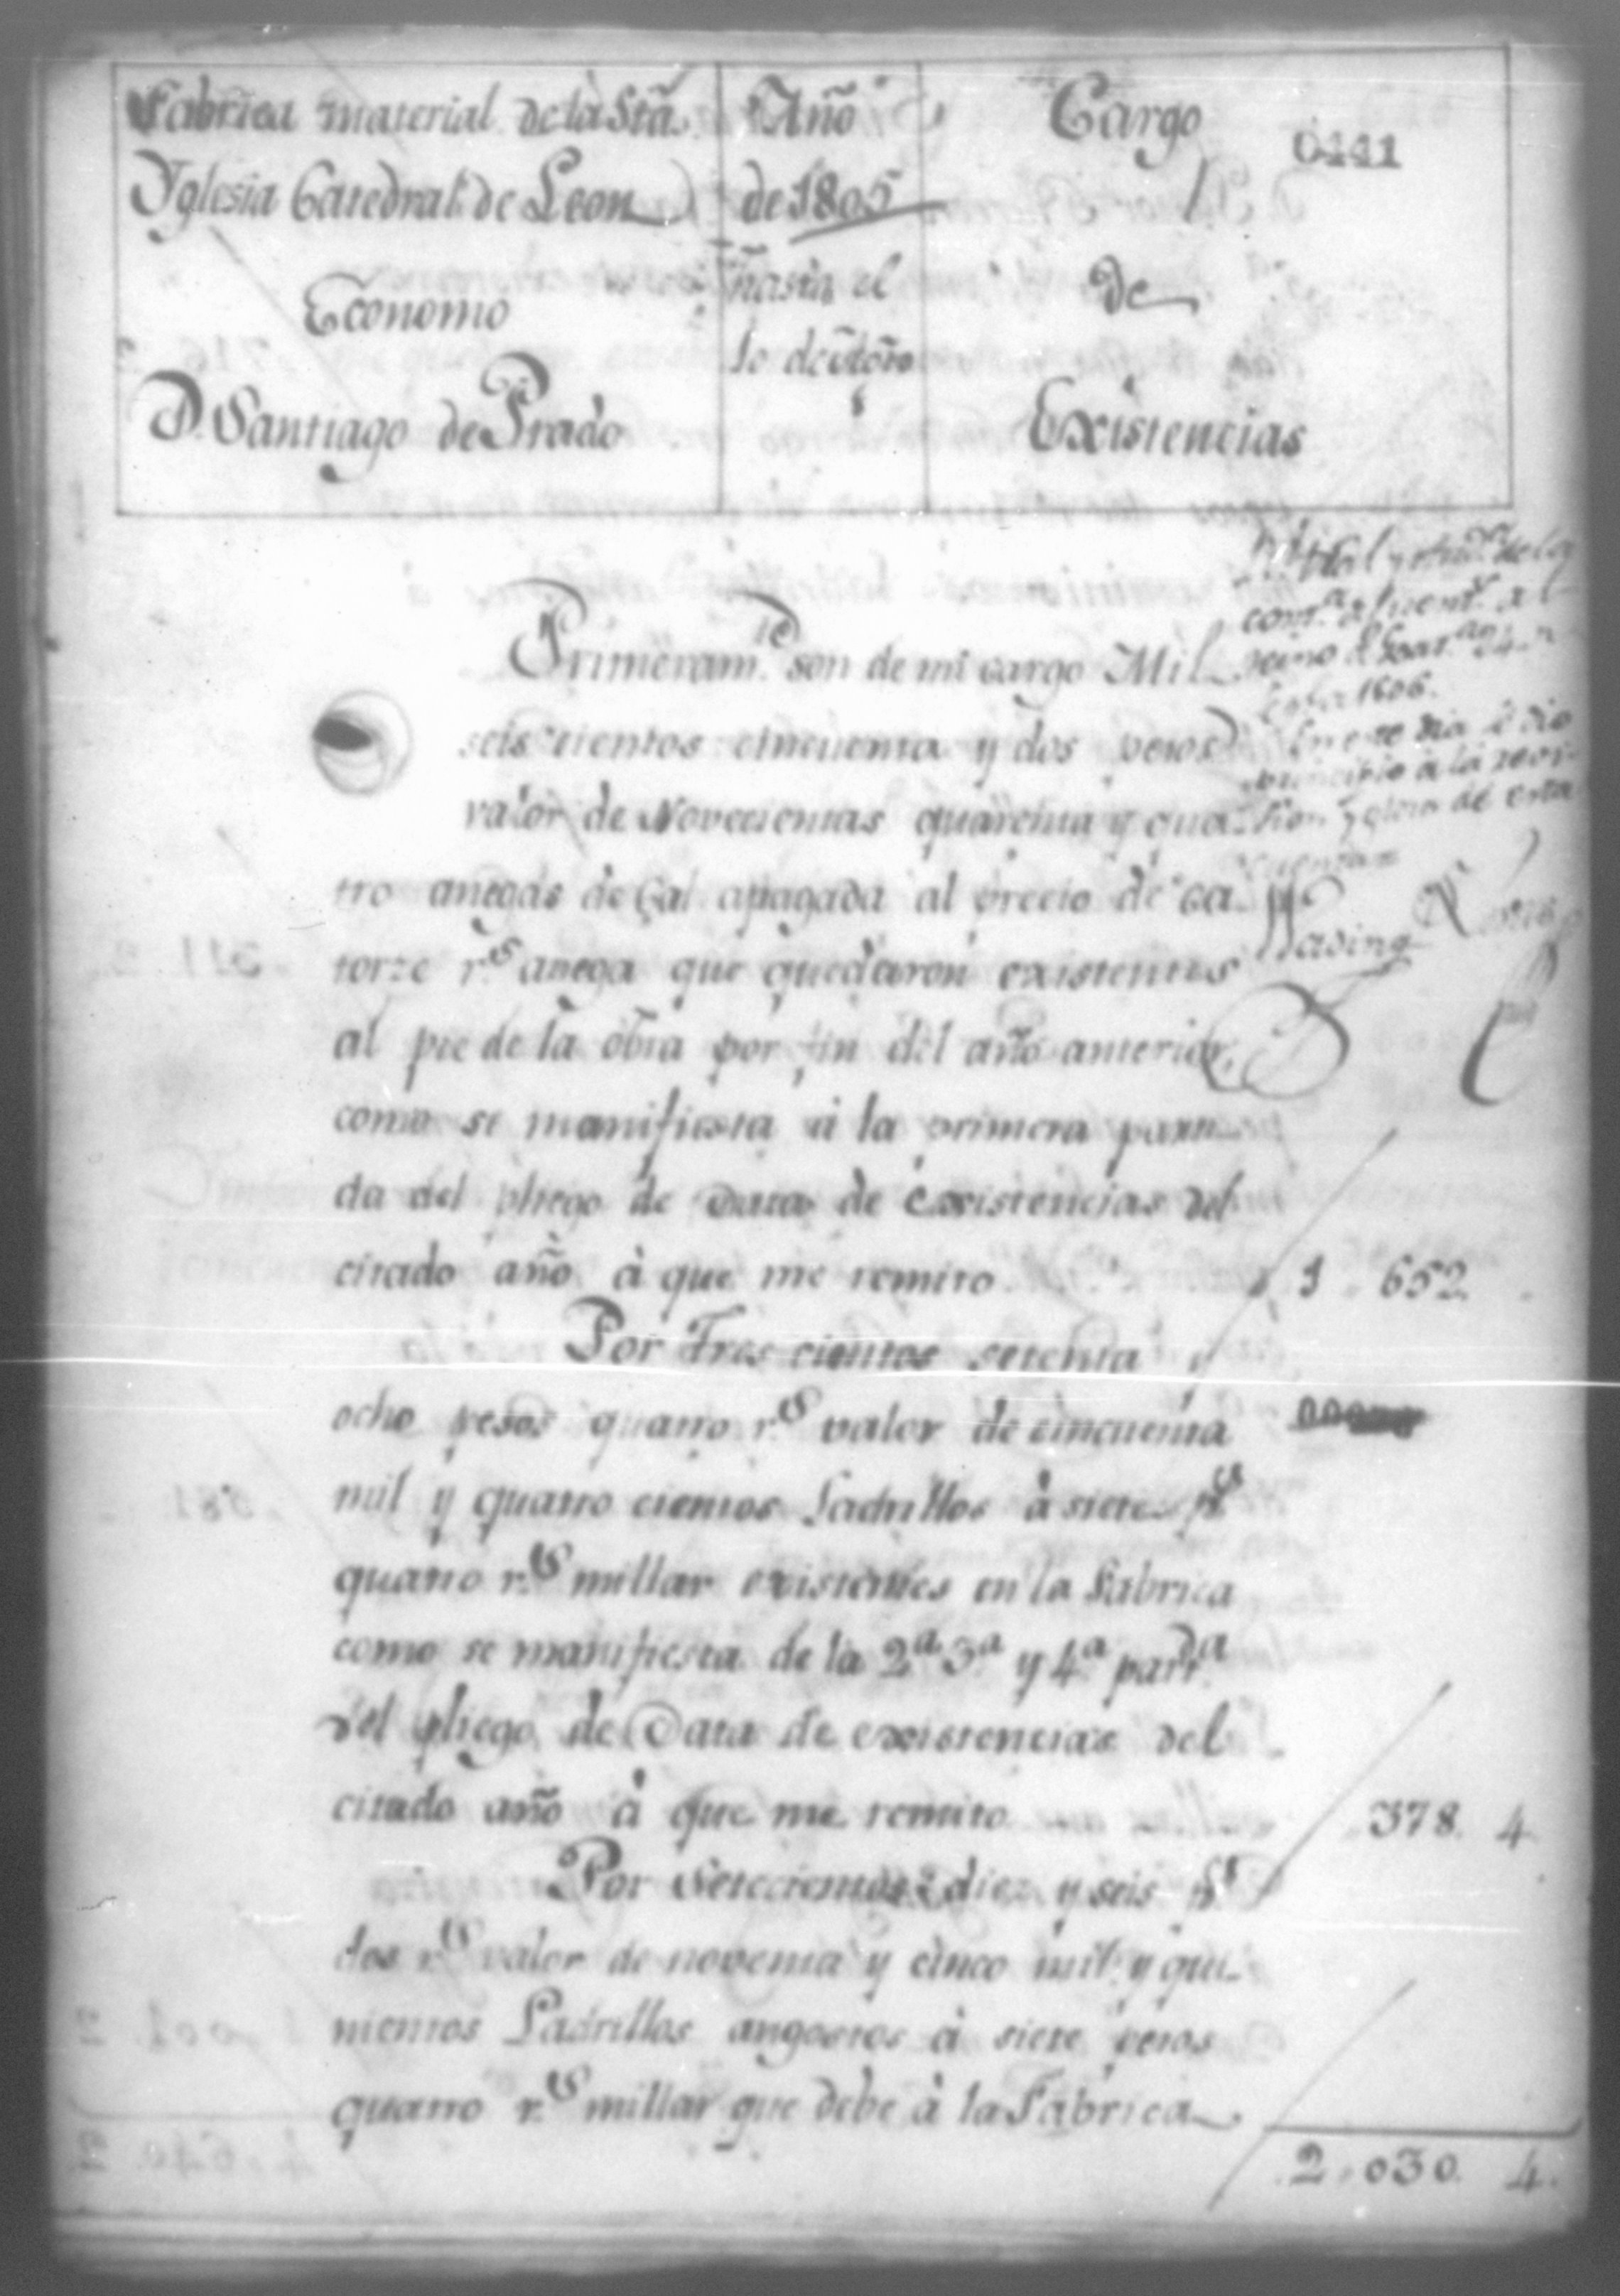 Fabrica material de la Sta
Yglesia Catedral de Leon
Economo
D. Santiago de Prado
Año
de 1805
hasta el
Cargo
0441
de
Existencias
Primeram.te son de mi cargo Mil
seis cientos cincuenta y dos pesos
valor de Novecientas quarenta y qua-
tro anegas de Cal apagada al precio de ca-
torze r.s anega que quedaron existentes
al pie de la obra por fin del año anterior,
como se manifiesta à la primera parti-
da del pliego de Data de existencias del
citado año à que me remito
1 652.
Por Tres cientos setenta y
ocho pesos quatro r.s valor de cincuenta
mil y quatro cientos Ladrillos à siete p.s
quatro r.s millar existentes en la Fabrica
como se manifiesta de la 2.a 3.a y 4.a part.da
del pliego de Data de existencias del
citado año à que me remito
378. 4
Por Setecientos diez y seis p.s
dos r.s valor de noventa y cinco mil y qui-
nientos Ladrillos angostos à siete pesos
quatro r.s millar que debe à la Fabrica
2 030. 4.
1806.
En este dia se dio
principio à la revi-
sion y glosa de esta
cuenta